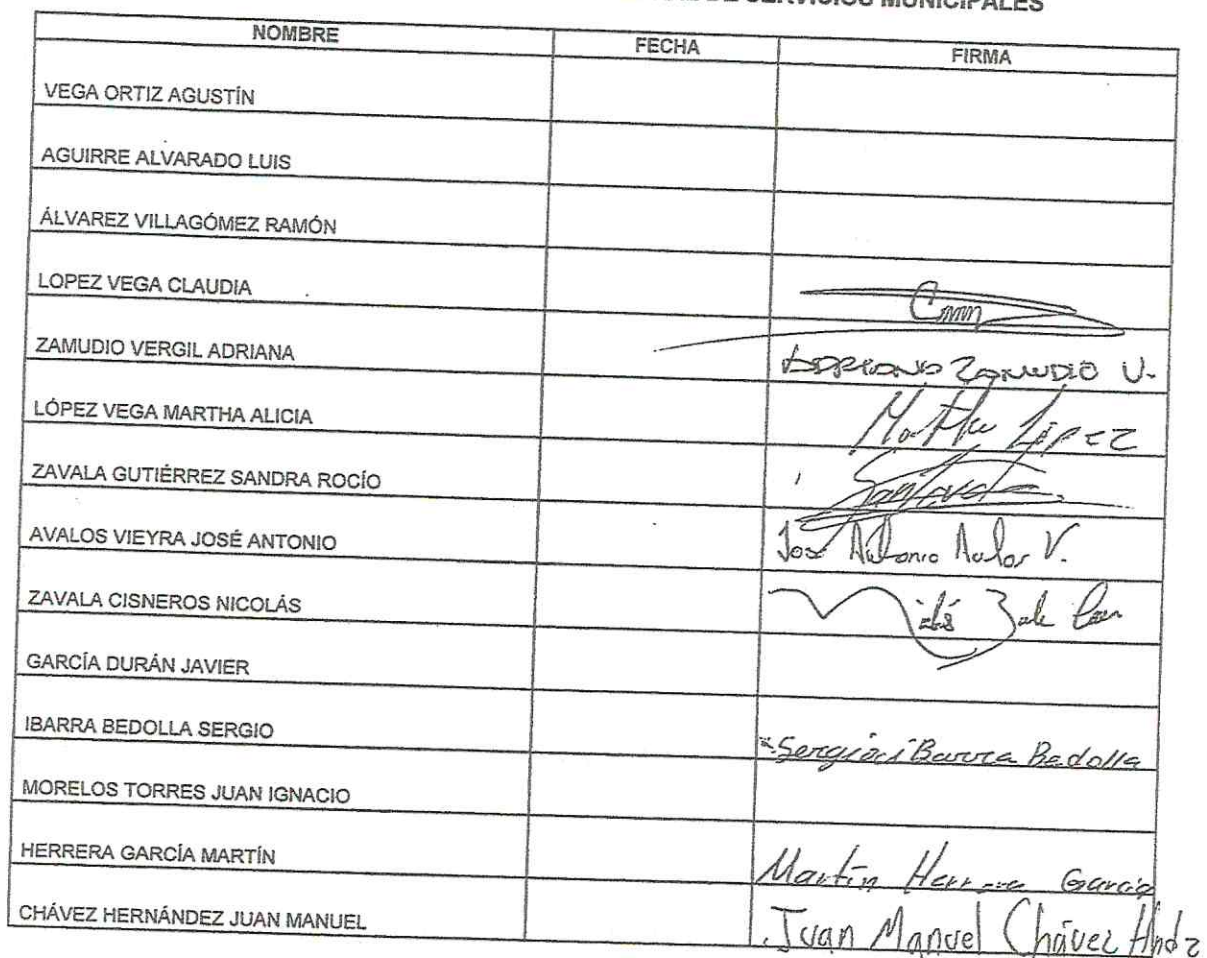 DE SERVICIOS MUNICIPALES
NOMBRE FECHA FIRMA
VEGA ORTIZ AGUSTÍN
AGUIRRE ALVARADO LUIS
ÁLVAREZ VILLAGÓMEZ RAMÓN
LOPEZ VEGA CLAUDIA
ZAMUDIO VERGIL ADRIANA ADRIANA ZAMUDIO V.
LÓPEZ VEGA MARTHA ALICIA Martha LÓPEZ
ZAVALA GUTIÉRREZ SANDRA ROCÍO
AVALOS VIEYRA JOSÉ ANTONIO José Antonio Avalos V.
ZAVALA CISNEROS NICOLÁS
GARCÍA DURÁN JAVIER
IBARRA BEDOLLA SERGIO Sergio iBarra Bedolla
MORELOS TORRES JUAN IGNACIO
HERRERA GARCÍA MARTÍN Martín Herrera García
CHÁVEZ HERNÁNDEZ JUAN MANUEL Juan Manuel Chávez Hndz